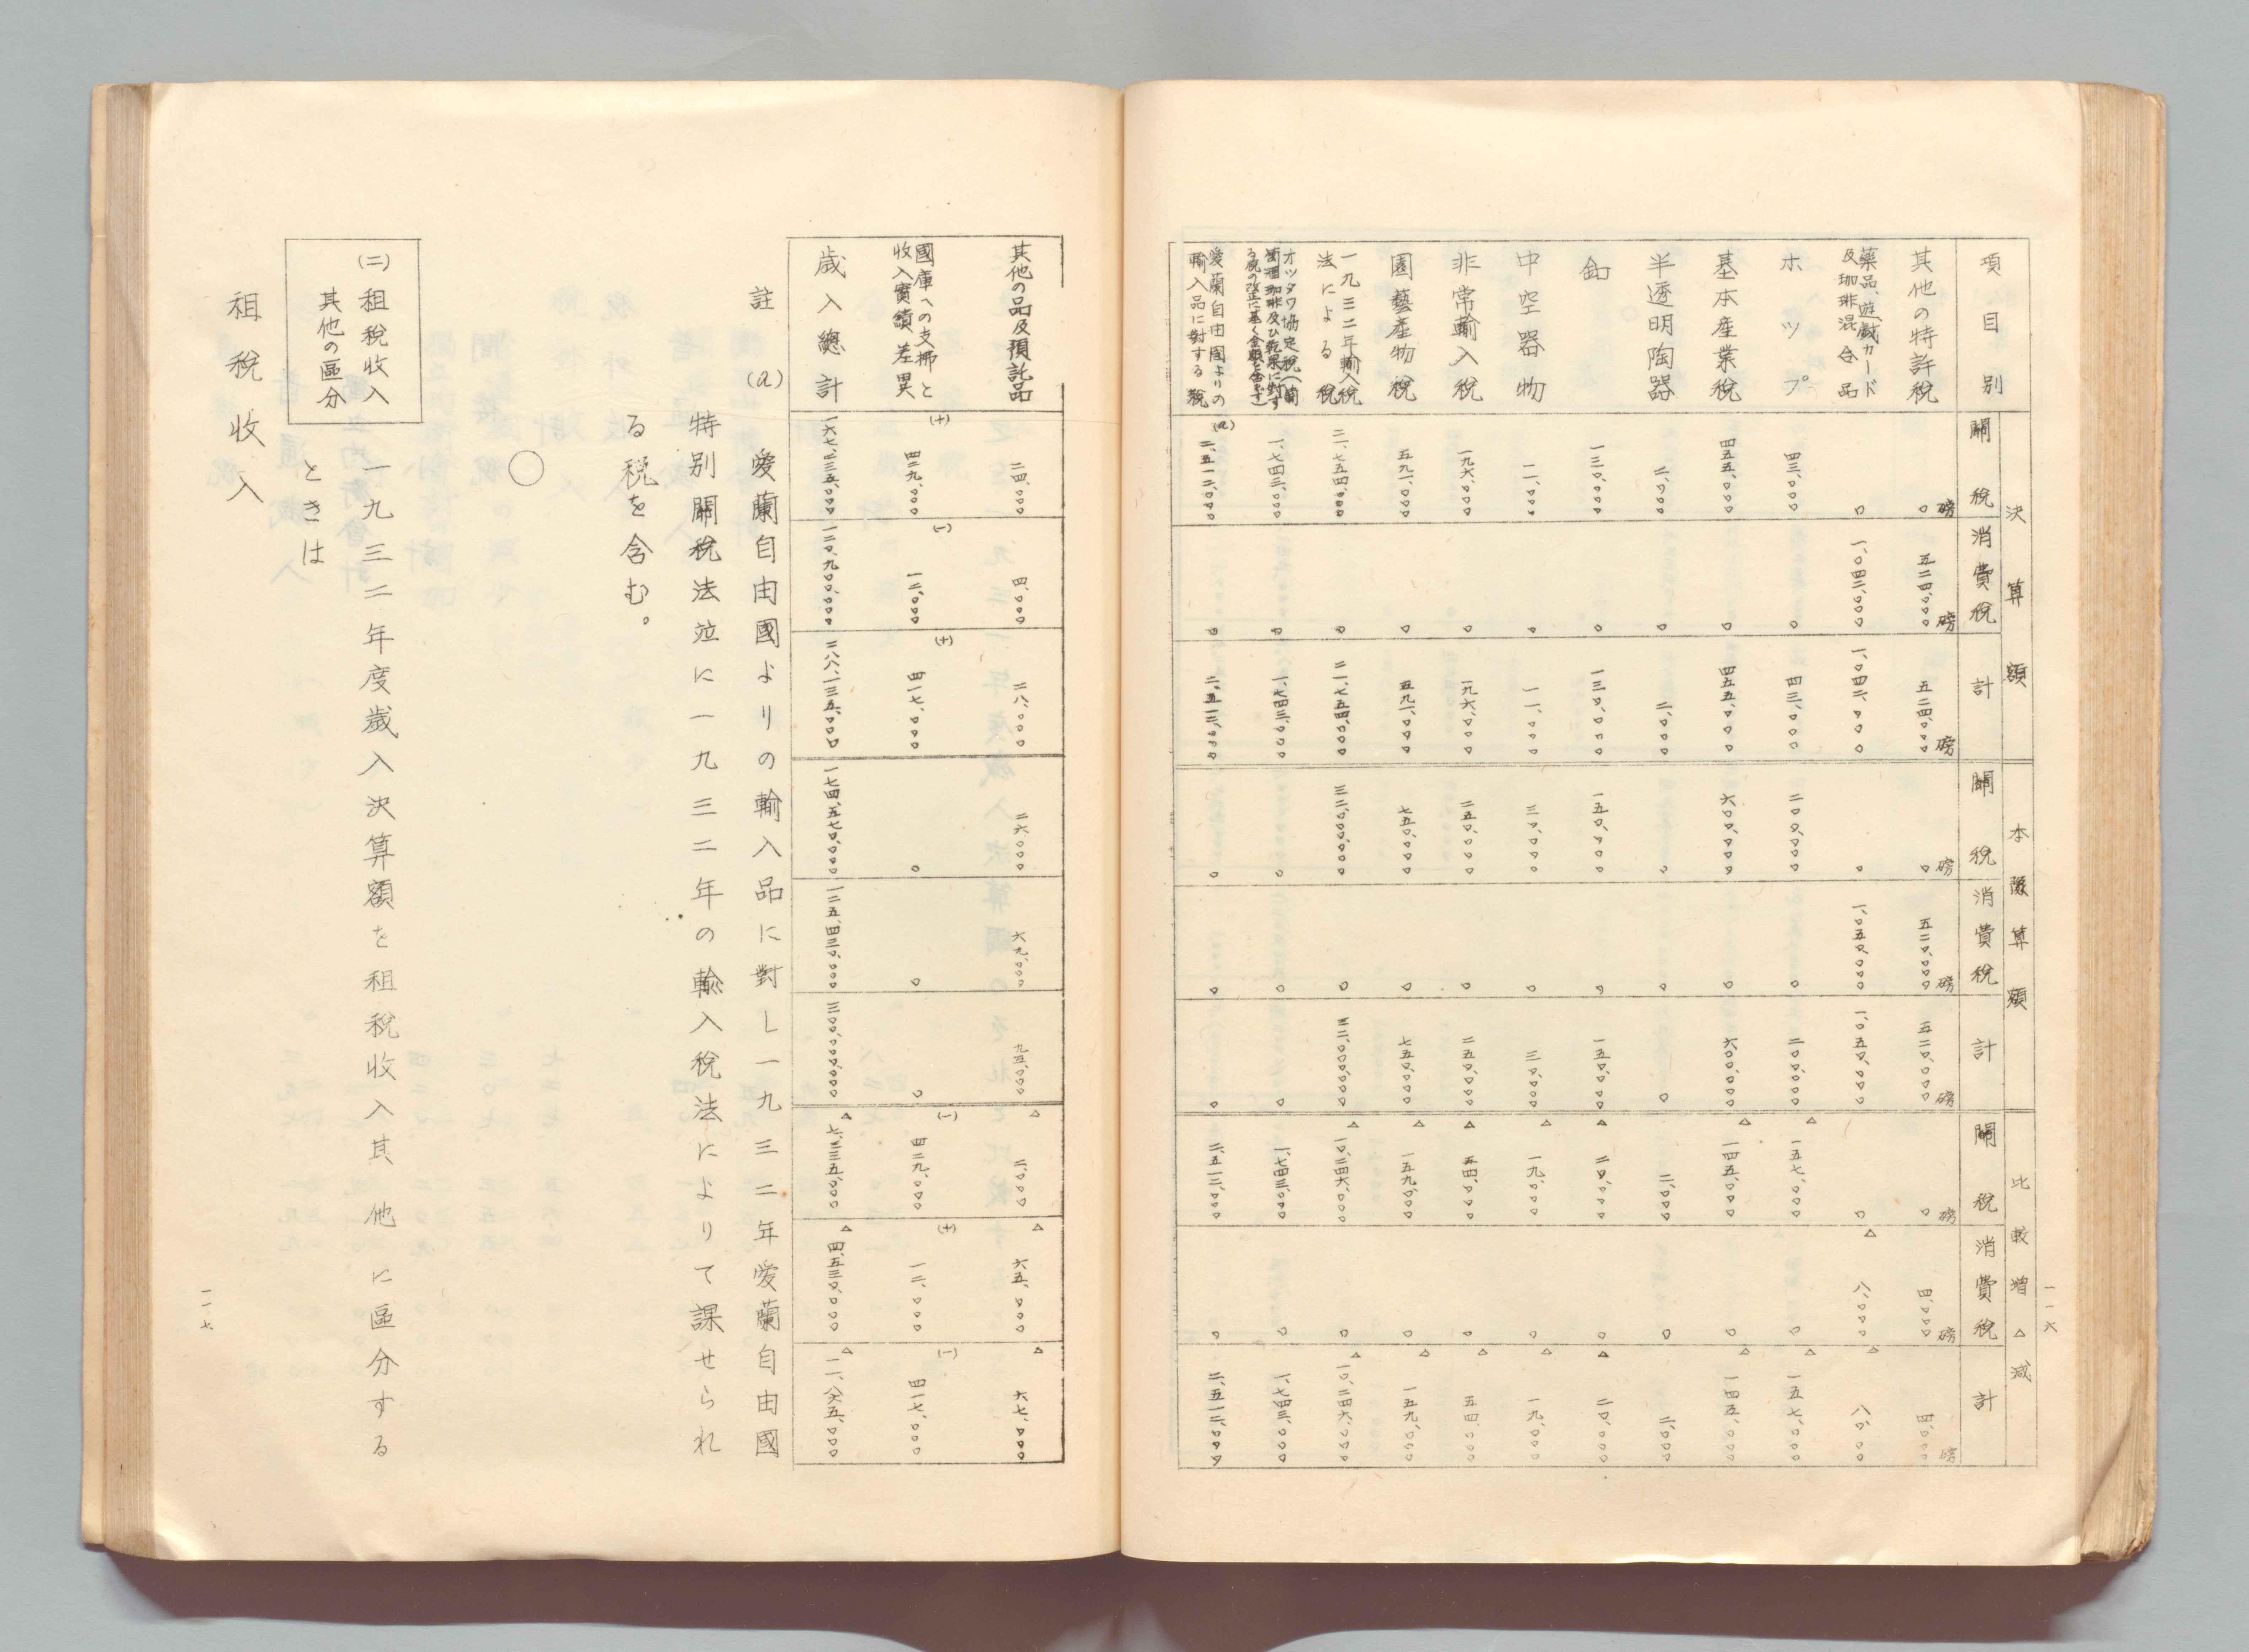 一一六
項目別
決算額
本豫算額
比較增△減
關稅
消費稅
計
關稅
消費稅
計
關稅
消費稅
計
其他の特許稅 〇磅 五二四、〇〇〇磅 五二四、〇〇〇磅 〇磅 五二〇、〇〇〇磅 五二〇、〇〇〇磅 〇磅 四、〇〇〇磅 四、〇〇〇磅
藥品、遊戲カード及珈琲混合品 〇 一、〇四二、〇〇〇 一、〇四二、〇〇〇 〇 一、〇五〇、〇〇〇 一、〇五〇、〇〇〇 〇 △八、〇〇〇 △八、〇〇〇
ホップ 四三、〇〇〇 〇 四三、〇〇〇 二〇〇、〇〇〇 〇 二〇〇、〇〇〇 △一五七、〇〇〇 〇 △一五七、〇〇〇
基本產業稅 四五五、〇〇〇 〇 四五五、〇〇〇 六〇〇、〇〇〇 〇 六〇〇、〇〇〇 △一四五、〇〇〇 〇 △一四五、〇〇〇
半透明陶器 二、〇〇〇 〇 二、〇〇〇 〇 〇 〇 二、〇〇〇 〇 二、〇〇〇
釦 一三〇、〇〇〇 〇 一三〇、〇〇〇 一五〇、〇〇〇 〇 一五〇、〇〇〇 △二〇、〇〇〇 〇 △二〇、〇〇〇
中空器物 一一、〇〇〇 〇 一一、〇〇〇 三〇、〇〇〇 〇 三〇、〇〇〇 △一九、〇〇〇 〇 △一九、〇〇〇
非常輸入稅 一九六、〇〇〇 〇 一九六、〇〇〇 二五〇、〇〇〇 〇 二五〇、〇〇〇 △五四、〇〇〇 〇 △五四、〇〇〇
園藝產物稅 五九一、〇〇〇 〇 五九一、〇〇〇 七五〇、〇〇〇 〇 七五〇、〇〇〇 △一五九、〇〇〇 〇 △一五九、〇〇〇
一九三二年輸入稅法による稅 二一、七五四、〇〇〇 〇 二一、七五四、〇〇〇 三二、〇〇〇、〇〇〇 〇 三二、〇〇〇、〇〇〇 △一〇、二四六、〇〇〇 〇 △一〇、二四六、〇〇〇
オツタワ協定稅(葡萄酒珈琲及び乾果に對する稅の改正に基く金額を含む) 一、七四三、〇〇〇 〇 一、七四三、〇〇〇 〇 〇 一、七四三、〇〇〇 〇 一、七四三、〇〇〇
愛蘭自由國よりの輸入品に對する稅 (a)二、五一二、〇〇〇 〇 二、五一二、〇〇〇 〇 〇 〇 二、五一二、〇〇〇 〇 二、五一二、〇〇〇
其他の品及預託品 二四、〇〇〇 四、〇〇〇 二八、〇〇〇 二六、〇〇〇 六九、〇〇〇 九五、〇〇〇 △二、〇〇〇 △六五、〇〇〇 △六七、〇〇〇
國庫への支拂と收入實績差異 (+)四二九、〇〇〇 (−)一二、〇〇〇 (+)四一七、〇〇〇 〇 〇 〇 (−)四二九、〇〇〇 (+)一二、〇〇〇 (−)四一七、〇〇〇
歲入總計 一六七、二三五、〇〇〇 一二〇、九〇〇、〇〇〇 二八八、一三五、〇〇〇 一七四、五七〇、〇〇〇 一二五、四三〇、〇〇〇 三〇〇、〇〇〇、〇〇〇 △七、三三五、〇〇〇 △四、五三〇、〇〇〇 △一一、八六五、〇〇〇
註 (a) 愛蘭自由國よりの輸入品に對し一九三二年愛蘭自由國
特別關稅法竝に一九三二年の輸入稅法によりて課せられ
る稅を含む。
〇
(二)租稅收入
其他の區分
一九三二年度歲入決算額を租稅收入其他に區分する
ときは
租稅收入
一一七